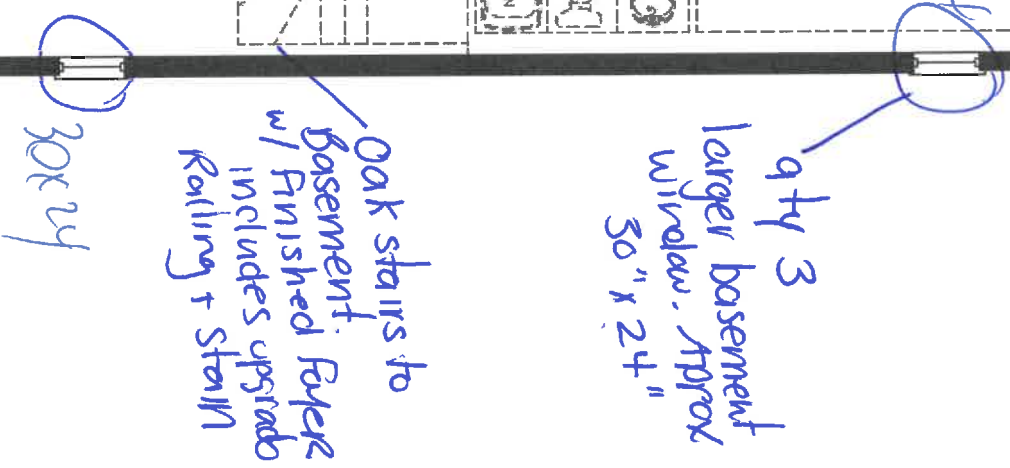 qty 3
larger basement
window. Approx
30" x 24"
Oak stairs to
Basement.
w/ finished foyer
includes upgrade
Railing + stain
30x24